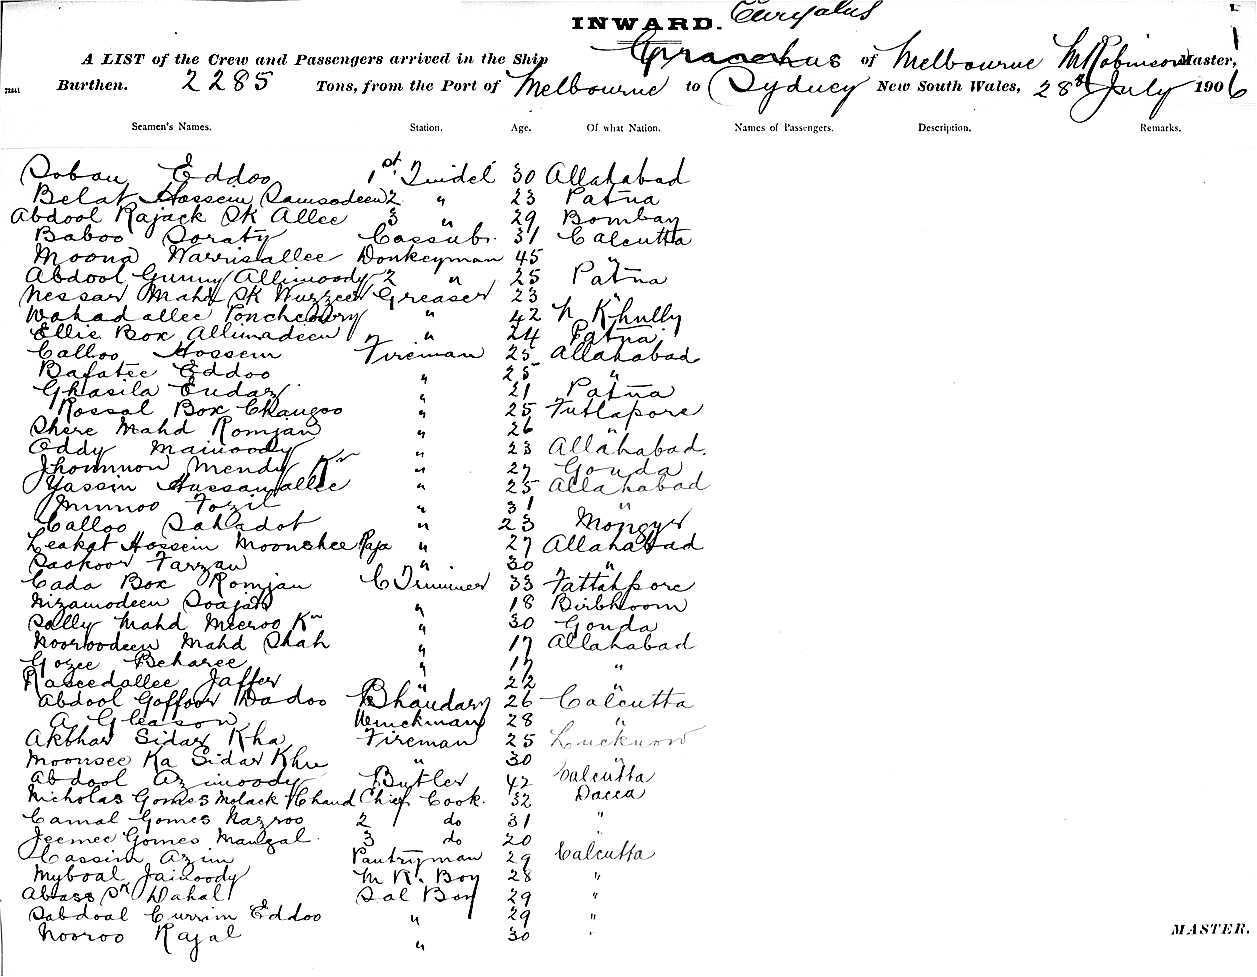 INWARD. Euryalus
A LIST of the Crew and Passengers arrived in the Ship Gracchus of Melbourne M Robinson Master,
Burthen. 2285 Tons, from the Port of Melbourne to Sydney New South Wales, 28th July 1906
Seamen's Names. Station. Age. Of what Nation. Names of Passengers. Description. Remarks.
Soban Eddoo 1st Tindel 30 Allahabad
Belat Hossein Samsodeen 2 " 23 Patna
Abdool Rajack Sk Allee 3 " 29 Bombay
Baboo Soraty Cassub. 31 Calcutta
Moona Warrisallee Donkeyman 45 "
Abdool Gunny Allimoody 2 " 25 Patna
Nessar Mahd Sk Wuzzeer Greaser 23 "
Wahadallee Ponchcowry " 42 N Khully
Ellie Box Allimadeen " 24 Patna
Calloo Hossein Fireman 25 Allahabad
Bafatee Eddoo " 25 "
Ghasila Eudar " 21 Patna
Rossal Box Changoo " 25 Futtapore
Shere Mahd Romjan " 26 "
Oddy Mainoody " 23 Allahabad.
Jhommon Mendy Kn " 27 Gonda
Yassin Hassanallee " 25 Allahabad
Munnoo Fozil " 31 "
Calloo Sahadot " 23 Mongyr
Leakat Hossein Moonshee Raja " 27 Allahabad
Sackoor Farzan " 30 "
Cada Box Romjan C Trimmer 33 Fattahpore
Nizamodeen Soajat " 18 Birbhoom
Solly Mahd Meeroo Kn " 30 Gonda
Nooroodeen Mahd Shah " 17 Allahabad
Gozee Beharee " 17 "
Raseedallee Jaffer " 22 "
Abdool Goffoor Dadoo Bhandary 26 Calcutta
A Gleason Winchman 28 "
Akbhar Sidar Kha Fireman 25 Lucknow
Moonsee Ka Sidar Khu " 30 "
Abdool Azimoody Butler 42 Calcutta
Nicholas Gomes Molack Chand Chief Cook. 32 Dacca
Camal Gomes Nazroo 2 do 31 "
Jeemee Gomes Mangal 3 do 20 "
Cassim Azim Pantryman 29 Calcutta
Myboal Jainoody M R. Boy 28 "
Abass Sk Dahal Sal Boy 29 "
Sabdoal Currim Eddoo " 29 "
Nooroo Rajal " 30 "
MASTER.